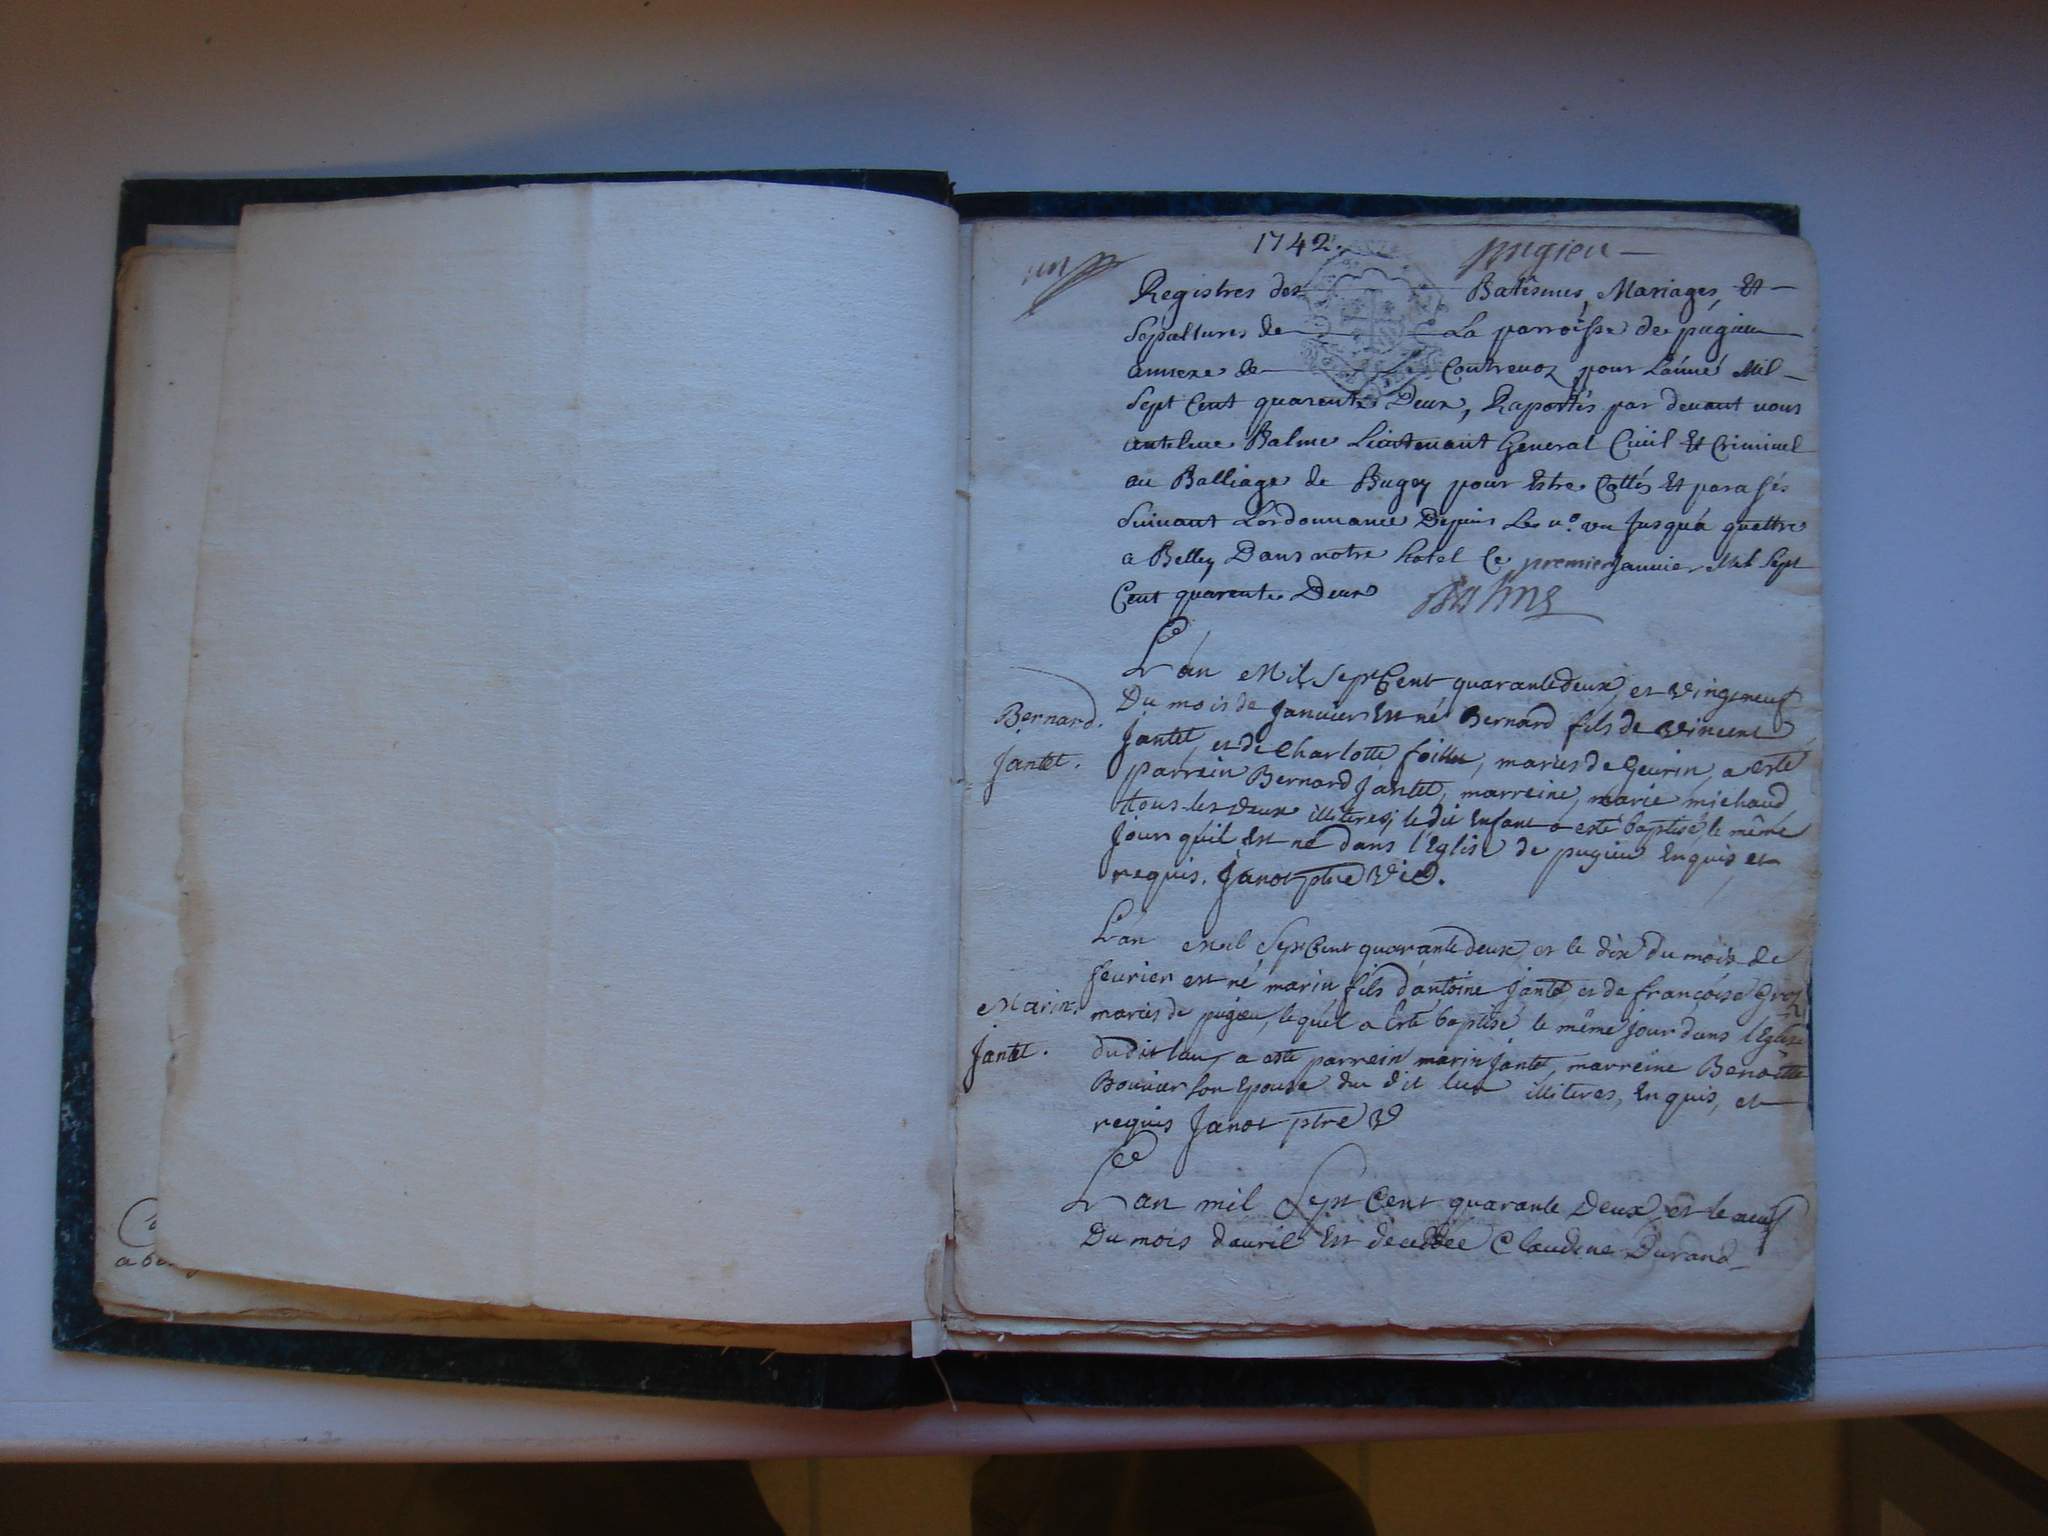 1742.
pugieu
un
Registres des Batêsmes, Mariages, Et
Sépultures de La parroisse de pugieu
annexe de Contrevoz pour L'année Mil
Sept Cent quarente Deux, Raportés par devant nous
antelme Balme Lieutenant General Civil Et Criminel
au Balliage de Bugey pour Estre Cottés Et parafés
Suivant L'ordonnance Depuis Le n.º un Jusqu'a quattre
a Belley Dans notre hotel Ce premier Janvier Mil Sept
Cent quarente Deux Balme
L'an Mil Sept Cent quarante deux et Vingt neuf
Du mois de Janvier Est né Bernard fils de Vincent
Bernard.
Jantet, et de Charlotte mariés de Geurin, a esté
Jantet.
parrein Bernard Jantet, marreine, marie michaud
tous les deux illiteres, le dit Enfant a esté baptisé le même
Jour qu'il Est né dans l'Eglise de pugieu Enquis et
requis. Janot ptre Vic.
L'an mil Sept Cent quarante deux et le dix du mois de
fevrier est né marin fils d'antoine Jantet et de françoise Groz
Marin.
mariés de pugieu, lequel a Esté baptisé le même jour dans l'Eglise
Jantet.
du dit lieu, a esté parrein marin Jantet, marreine Benoitte
Bouvier son Epouse du dit lieu illiteres, Enquis, et
requis Janot ptre V
L'an mil Sept Cent quarante Deux et le neuf
Du mois d'avril Est décédée Claudine Durand